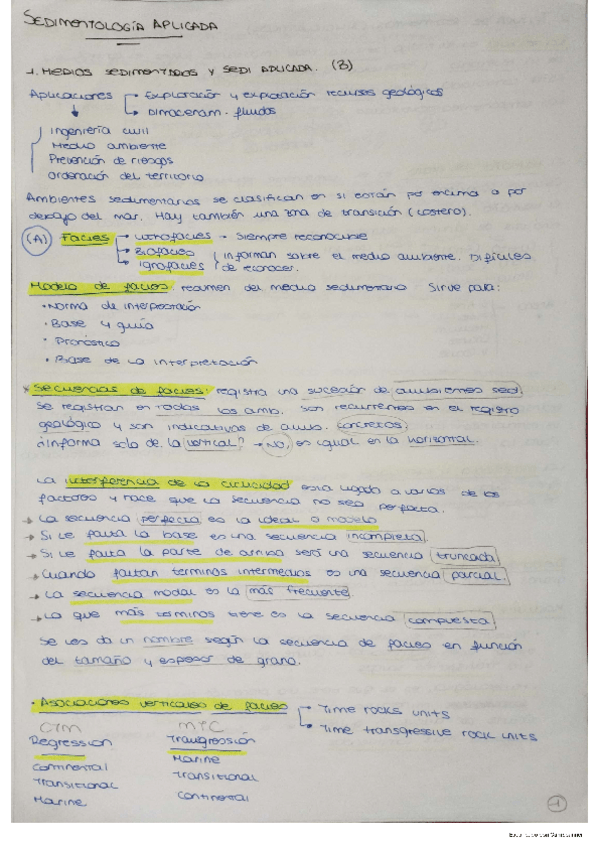 SEDIMENTOLOGÍA APLICADA
1. MEDIOS SEDIMENTARIOS Y SEDI APLICADA. (B)
Aplicaciones → Exploración y explotación recursos geológicos
→ Almacenam. fluidos
Ingeniería civil
Medio ambiente
Prevención de riesgos
Ordenación del territorio
Ambientes sedimentarios se clasifican en si están por encima o por
debajo del mar. Hay también una zona de transición (costero).
(A) Facies → Litofacies → Siempre reconocible
→ Biofacies
→ Ignofacies
Informan sobre el medio ambiente. Difíciles
de reconocer.
Modelo de facies: resumen del medio sedimentario Sirve para:
• Norma de interpretación
• Base y guía
• Pronóstico
• Base de la interpretación
* Secuencias de facies: registra una sucesión de ambientes sed.
Se registran en todos los amb. son recurrentes en el registro
geológico y son indicativas de amb. concretos.
¿Informa solo de la vertical? → No, es igual en la horizontal.
La interferencia de la ciclicidad está ligado a varios de los
factores y hace que la secuencia no sea perfecta.
→ La secuencia perfecta es la ideal o modelo
→ Si le falta la base es una secuencia incompleta.
→ Si le falta la parte de arriba será una secuencia truncada
→ Cuando faltan terminos intermedios es una secuencia parcial.
→ La secuencia modal es la más frecuente.
→ La que más terminos tiene es la secuencia compuesta.
Se les da un nombre según la secuencia de facies en función
del tamaño y espesor de grano.
• Asociaciones verticales de facies → Time rocks units
→ Time transgressive rock units
CTM
MTC
Regression
Transgression
Continental
Marine
Transitional
Transitional
Marine
Continental
1